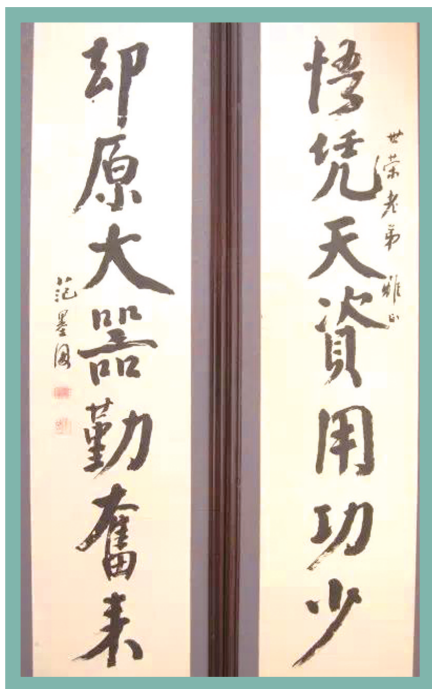 世荣老弟 雅正
悟凭天資用功少
却原大器勤奮来
范墨